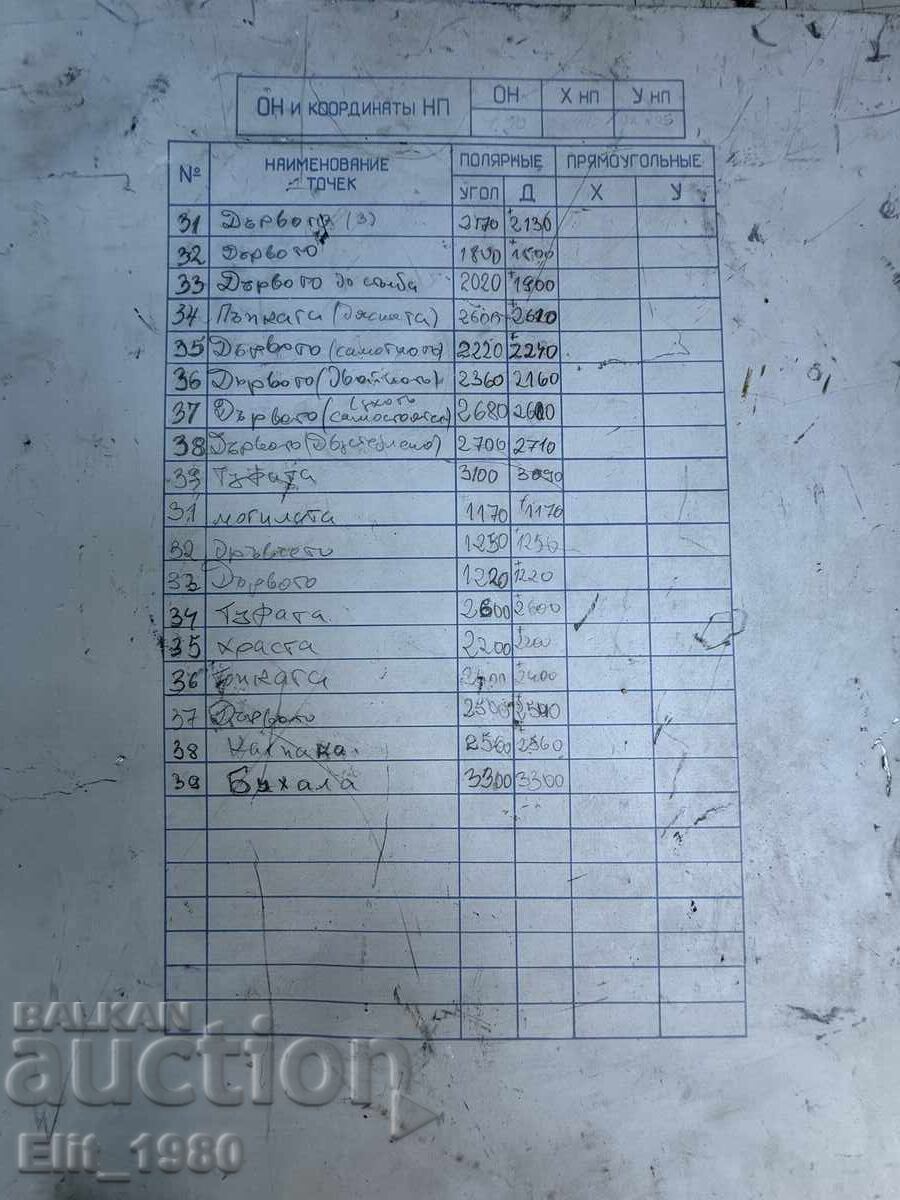 ОН и КООРДИНАТЫ НП ОН X НП У НП
№ НАИМЕНОВАНИЕ ТОЧЕК ПОЛЯРНЫЕ ПРЯМОУГОЛЬНЫЕ
УГОЛ Д X У
31 Дървото (3) 2170 2130
32 Дървото 1800 1800
33 Дървото до стълба 2020 1900
34 Пъпката 2600 2620
35 Дървото (самотното) 2220 2240
36 Дървото (двойното) 2360 2160
37 Дървото (самостоятел 2680
38 Дървото 2700 2710
39 Туфата 3100 3090
31 могилата 1170 1170
32 1250 1250
33 Дървото 1220 1220
34 Туфата 2600 2600
35 храста 2200 2200
36 2400
37 Дървото 2500 2500
38 Калпака. 2560 2560
39 Бухала 3300 3300
BALKAN
auction
Elit_1980